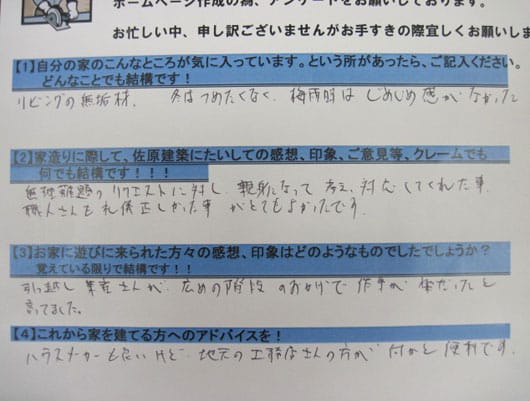 ホームページ作成の為、アンケートをお願いしております。
お忙しい中、申し訳ございませんがお手すきの際宜しくお願いしま
【1】自分の家のこんなところが気に入っています。という所があったら、ご記入ください。
どんなことでも結構です！
リビングの無垢材、 冬はつめたくなく、梅雨時は じめじめ感がなかった
【2】家造りに際して、佐原建築にたいしての感想、印象、ご意見等、クレームでも
何でも結構です！！！
無理難題のリクエストに対し、親身になって 考え、対応してくれた事
職人さんも礼儀正しかった事 がとてもよかったです。
【3】お家に遊びに来られた方々の感想、印象はどのようなものでしたでしょうか？
覚えている限りで結構です！！
引越し業者さんが、広めの階段 のおかげで 作業が 楽だったと
言ってました。
【4】これから家を建てる方へのアドバイスを！
ハウスメーカーも良いけど、地元の工務店さんの方が 何かと 便利です。